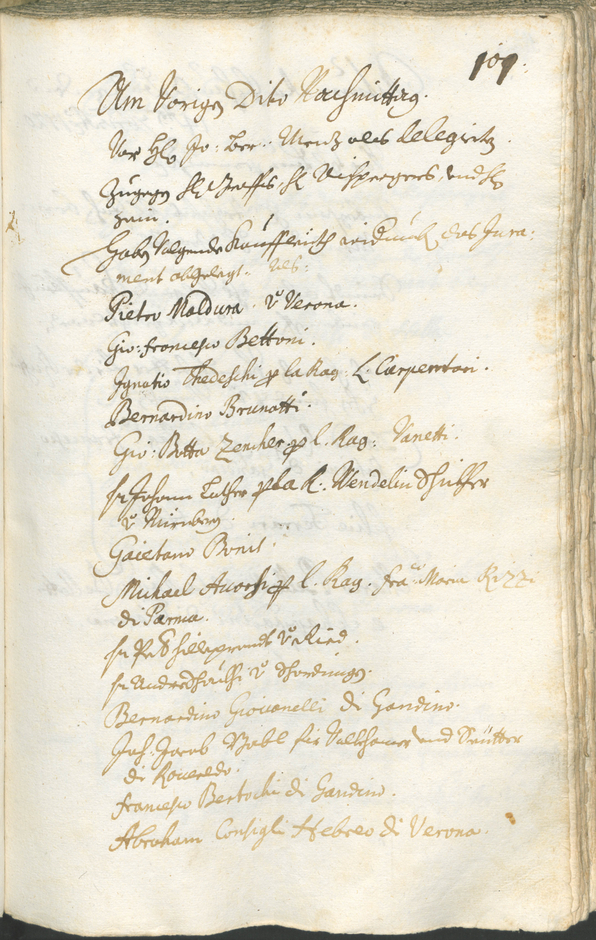 109.
Am Vorigen Dito Nachmittag.
Vor H. Jo: Ber: Menz als delegirten
Zugegen H. H. und H.
Haben Volgende Kauffleüth widerumb das Jura:
ment abgelegt. Als:
Pietro Maldura. v Verona.
Gio: francesco Bettoni.
Ignatio Thedeschi p la Rag: L: Carpentari.
Bernardino Brunatti.
Gio: Batta Zencher p l. Rag: Vanetti.
hr Johann Luther p la R: Wendelin
v Nürnberg
Gaietano Bonis.
Michael p l. Rag. fra: Maria Rizzi
di Parma.
hr v Ried.
hr Andre v Schardingen.
Bernardino Giovanelli di Gandino.
Joh: Jacob für und
di Roueredo.
francesco Bertochi di Gandino.
Abraham Consigli Hebreo di Verona.